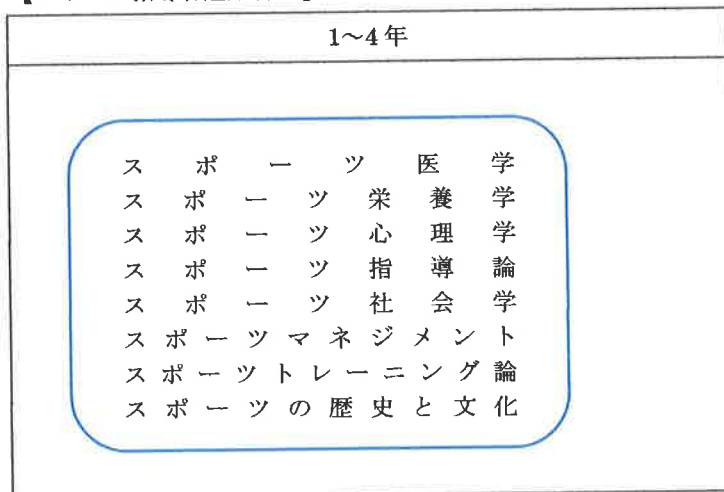 1～4年
スポーツ医学
スポーツ栄養学
スポーツ心理学
スポーツ指導論
スポーツ社会学
スポーツマネジメント
スポーツトレーニング論
スポーツの歴史と文化